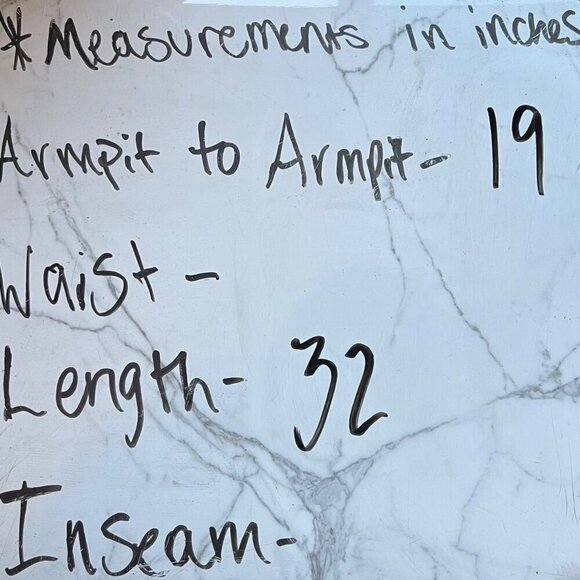 * Measurements in inches
Armpit to Armpit - 19
Waist -
Length - 32
Inseam -